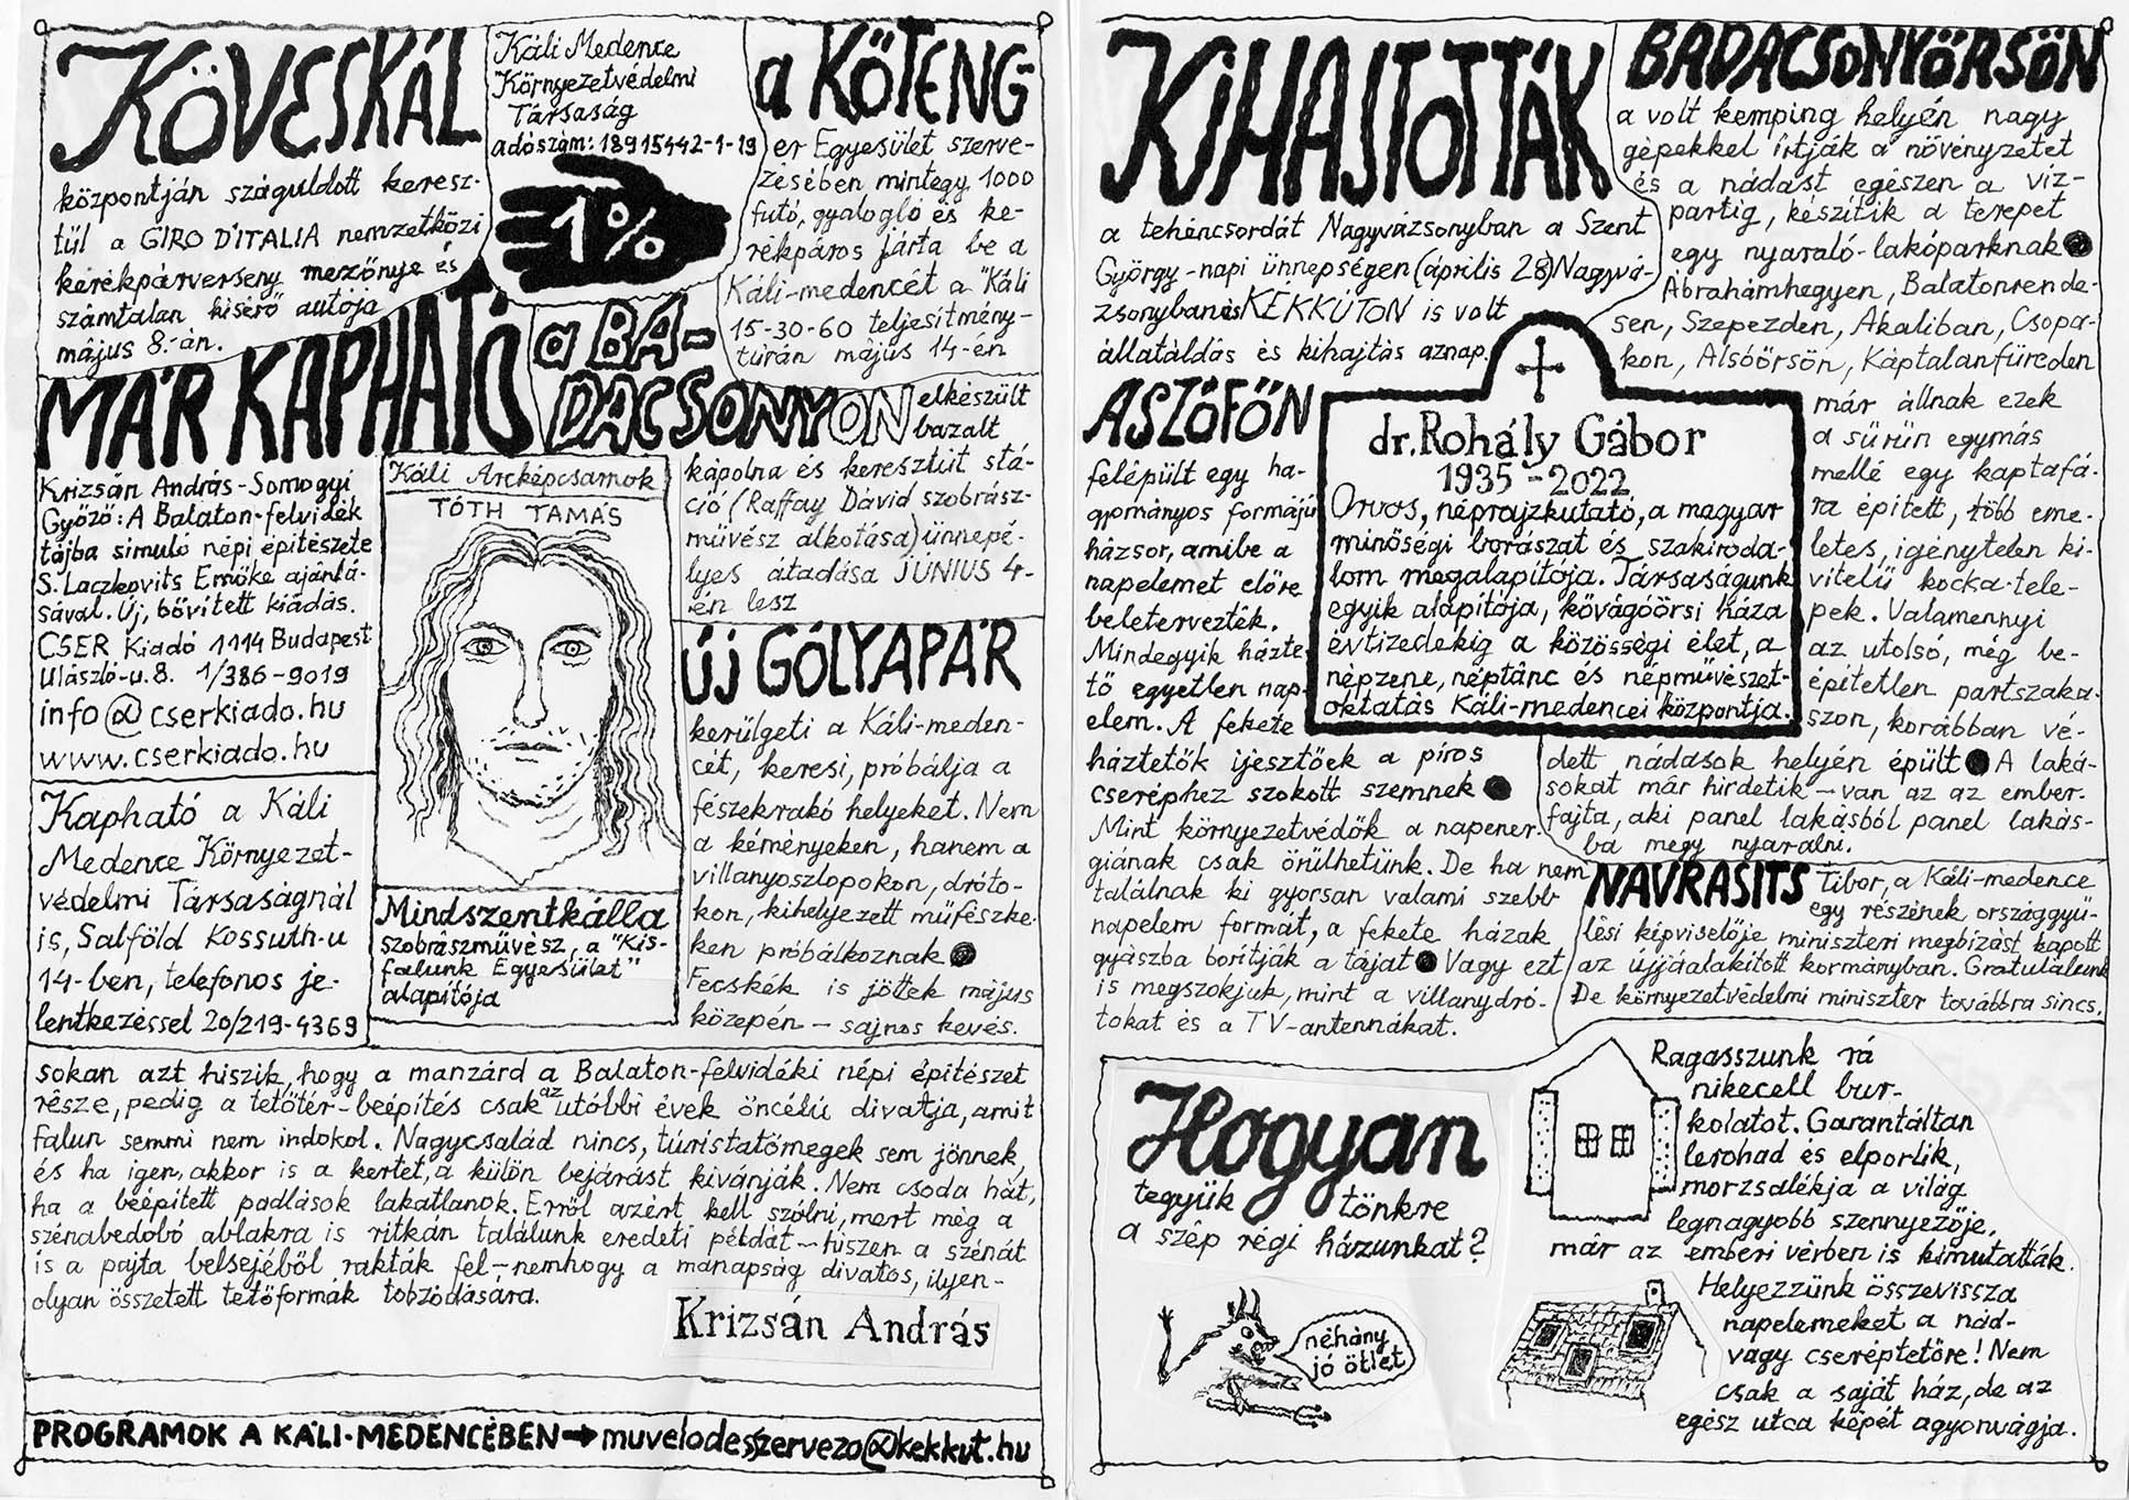 KÖVESKÁL
központján száguldott keresz-
tül a GIRO D'ITALIA nemzetközi
kerékpárverseny mezőnye és
számtalan kisérő autója
május 8.-án.
Káli Medence
Környezetvédelmi
Társaság
adószám: 18915442-1-19
1%
a KŐTENG-
er Egyesület szerve-
zésében mintegy 1000
futó, gyalogló és ke-
rékpáros járta be a
Káli-medencét a "Káli
15-30-60 teljesitmény-
túrán május 14-én
MÁR KAPHATÓ
Krizsán András-Somogyi
Győző: A Balaton-felvidék
tájba simuló népi épitészete
S. Laczkovits Emőke ajánlá-
sával. Új, bővitett kiadás.
CSER Kiadó 1114 Budapest
Ulászló-u. 8. 1/386-9019
info@cserkiado.hu
www.cserkiado.hu
Kapható a Káli
Medence Környezet-
védelmi Társaságnál
is, Salföld Kossuth-u
14-ben, telefonos je-
lentkezéssel 20/219-4369
Káli Arcképcsarnok
TÓTH TAMÁS
Mindszentkálla
szobrászművész, a "Kis-
falunk Egyesület"
alapitója
a BA-
DACSONYON elkészült
bazalt
kápolna és keresztút stá-
ció (Raffay Dávid szobrász-
művész alkotása) ünnepé-
lyes átadása JÚNIUS 4-
én lesz
ÚJ GÓLYAPÁR
kerülgeti a Káli-meden-
cét, keresi, próbálja a
fészekrakó helyeket. Nem
a kéményeken, hanem a
villanyoszlopokon, dróto-
kon, kihelyezett műfészke-
ken próbálkoznak
Fecskék is jöttek május
közepén – sajnos kevés.
sokan azt hiszik, hogy a manzárd a Balaton-felvidéki népi épitészet
része, pedig a tetőtér-beépítés csak az utóbbi évek öncélú divatja, amit
falun semmi nem indokol. Nagycsalád nincs, túristatömegek sem jönnek,
és ha igen, akkor is a kertet, a külön bejárást kivánják. Nem csoda hát,
ha a beépített padlások lakatlanok. Erről azért kell szólni, mert még a
szénabedobó ablakra is ritkán találunk eredeti példát – hiszen a szénát
is a pajta belsejéből rakták fel – nemhogy a manapság divatos, ilyen-
olyan összetett tetőformák tobzódására.
Krizsán András
PROGRAMOK A KÁLI-MEDENCÉBEN → muvelodesszervezo@kekkut.hu
KIHAJTOTTÁK
a tehéncsordát Nagyvázsonyban a Szent
György-napi ünnepségen (április 28) Nagyvá-
zsonyban és KÉKKÚTON is volt
állatáldás és kihajtás aznap.
BADACSONYÖRSÖN
a volt kemping helyén nagy
gépekkel írtják a növényzetet
és a nádast egészen a víz-
partig, készítik a terepet
egy nyaraló-lakóparknak
Ábrahámhegyen, Balatonrende-
sen, Szepezden, Akaliban, Csopa-
kon, Alsóörsön, Káptalanfüreden
már állnak ezek
a sűrűn egymás
mellé egy kaptafá-
ra épitett, több eme-
letes, igénytelen ki-
vitelű kocka-tele-
pek. Valamennyi
az utolsó, még be-
épitetlen partszaka-
szon, korábban vé-
dett nádasok helyén épült A laká-
sokat már hirdetik – van az az ember-
fajta, aki panel lakásból panel lakás-
ba megy nyaralni.
ASZÓFŐN
felépült egy ha-
gyományos formájú
házsor, amibe a
napelemet előre
beletervezték.
Mindegyik házte-
tő egyetlen nap-
elem. A fekete
háztetők ijesztőek a piros
cseréphez szokott szemnek
Mint környezetvédők a napener-
giának csak örülhetünk. De ha nem
találnak ki gyorsan valami szebb
napelem formát, a fekete házak
gyászba borítják a tájat Vagy ezt
is megszokjuk, mint a villanydró-
tokat és a TV-antennákat.
dr. Rohály Gábor
1935-2022
Orvos, néprajzkutató, a magyar
minőségi borászat és szakiroda-
lom megalapítója. Társaságunk
egyik alapítója, kővágóörsi háza
évtizedekig a közösségi élet, a
népzene, néptánc és népművészet-
oktatás Káli-medencei központja.
NAVRASITS Tibor, a Káli-medence
egy részének országgyű-
lési képviselője miniszteri megbízást kapott
az újjáalakított kormányban. Gratulálunk
De környezetvédelmi miniszter továbbra sincs.
Hogyan
tegyük tönkre
a szép régi házunkat?
néhány
jó ötlet
Ragasszunk rá
nikecell bur-
kolatot. Garantáltan
lerohad és elporlik,
morzsalékja a világ
legnagyobb szennyezője,
már az emberi vérben is kimutatták.
Helyezzünk összevissza
napelemeket a nád-
vagy cseréptetőre! Nem
csak a saját ház, de az
egész utca képét agyonvágja.